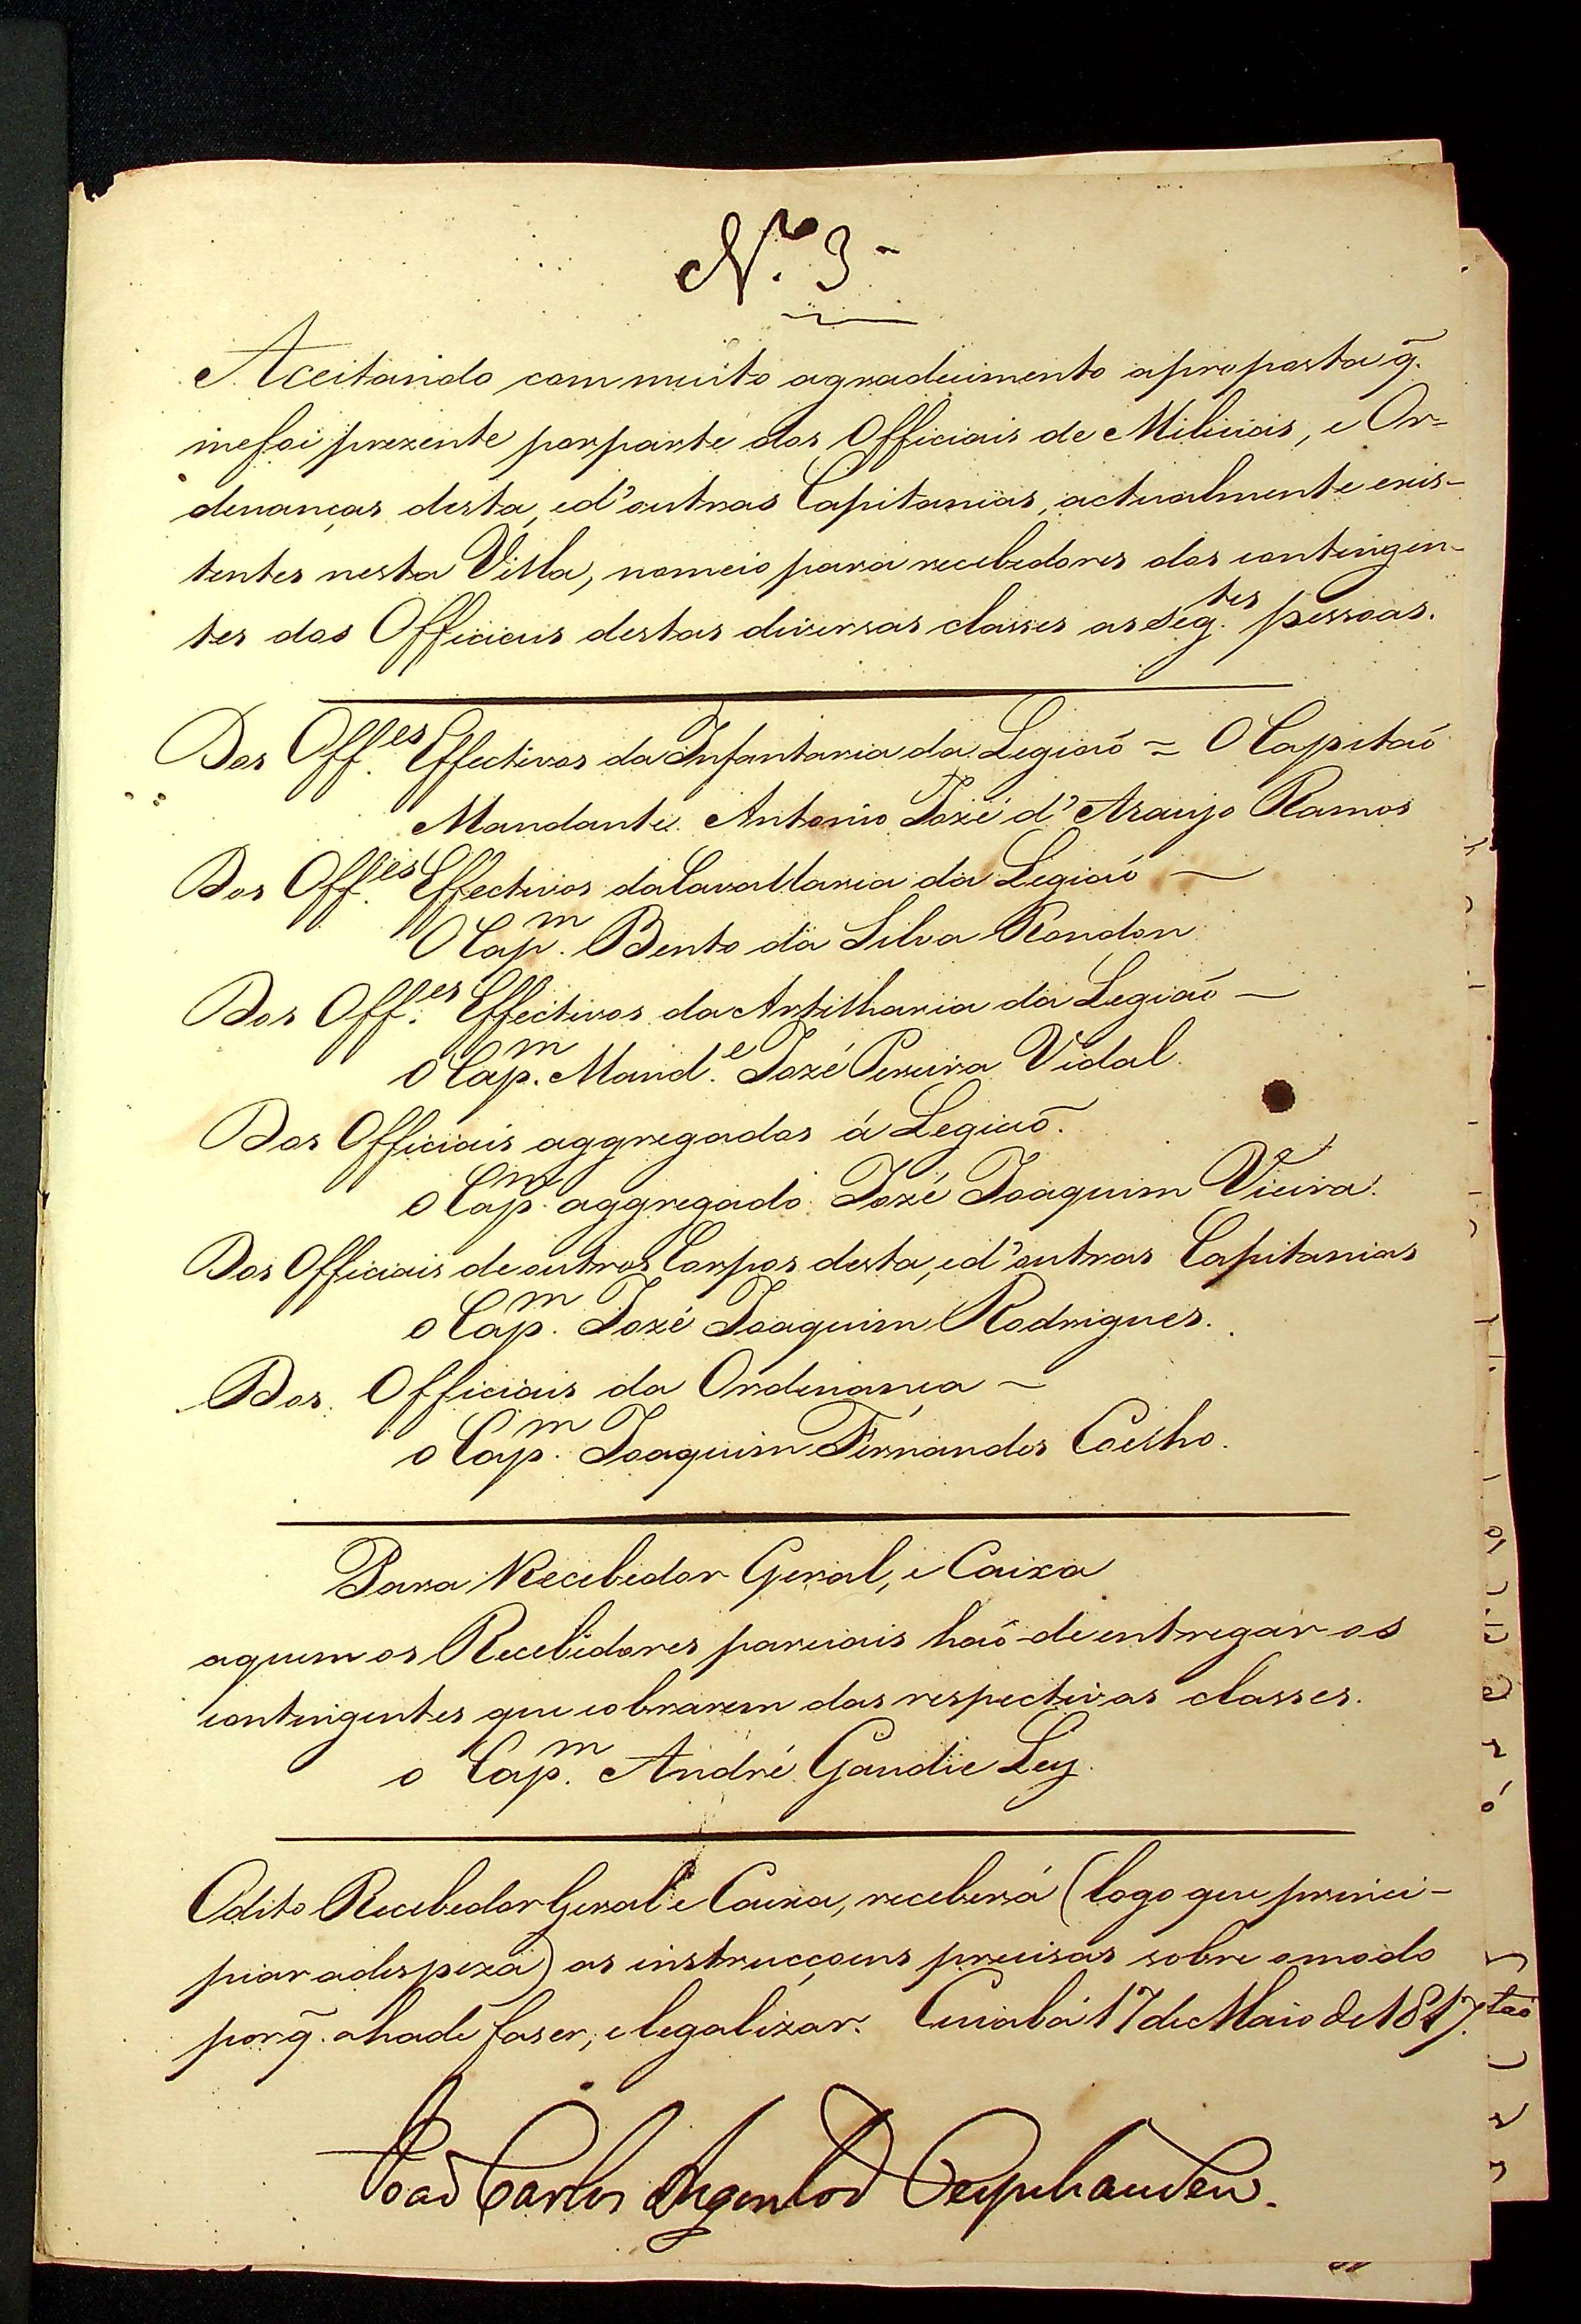 N.º 3-
Aceitando com muito agradecimento aproposta q̃.
mefoi prezente porparte dos Officiais de Milicias, e Or-
denanças desta, ed'outras Capitanias, actualmente exis-
tentes nesta Villa, nomeio para recebedores dos contingen-
tes dos Officiais destas diversas classes as Seg.tes pessoas.
Dos Off.es Effectivos da Infantaria da Legiaõ = O Capitaõ
Mandante Antonio Jozé d'Araujo Ramos
Dos Off.es Effectivos da Cavallaria da Legiaõ —
O Cap.m Bento da Silva Rondon
Dos Off.es Effectivos da Artilharia da Legiaõ —
O Cap.m Mand.e Jozé Pereira Vidal.
Dos Officiais aggregados á Legiaõ.
o Cap.m aggregado Jozé Joaquim Vieira.
Dos Officiais de outros Corpos desta, ed'outras Capitanias
o Cap.m Jozé Joaquim Rodrigues.
Dos Officiais da Ordenança ~
o Cap.m Joaquim Fernandes Coelho.
Para Recebedor Geral, e Caixa
aquem os Recebedores parciais haõ-de entregar os
contingentes que cobrarem das respectivas classes.
o Cap.m André Gaudie Ley.
Odito Recebedor Geral e Caixa, receberá (logo que princi-
piar adespeza) as instrucçoens precisas sobre omodo
porq̃. ahade faser, elegalizar. Cuiabá 17 de Maio de 1817.
Joaõ Carlos Augusto d'Oeynhausen.